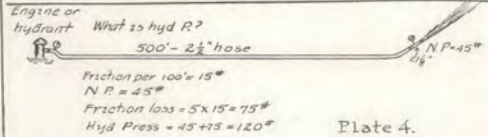 Engine or
hydrant What is hyd P.?
500'- 2½" hose
N.P.=45#
1⅛"
Friction per 100'= 15#
N P. = 45#
Friction loss = 5 x 15 = 75#
Hyd Press = 45+75 = 120#
Plate 4.